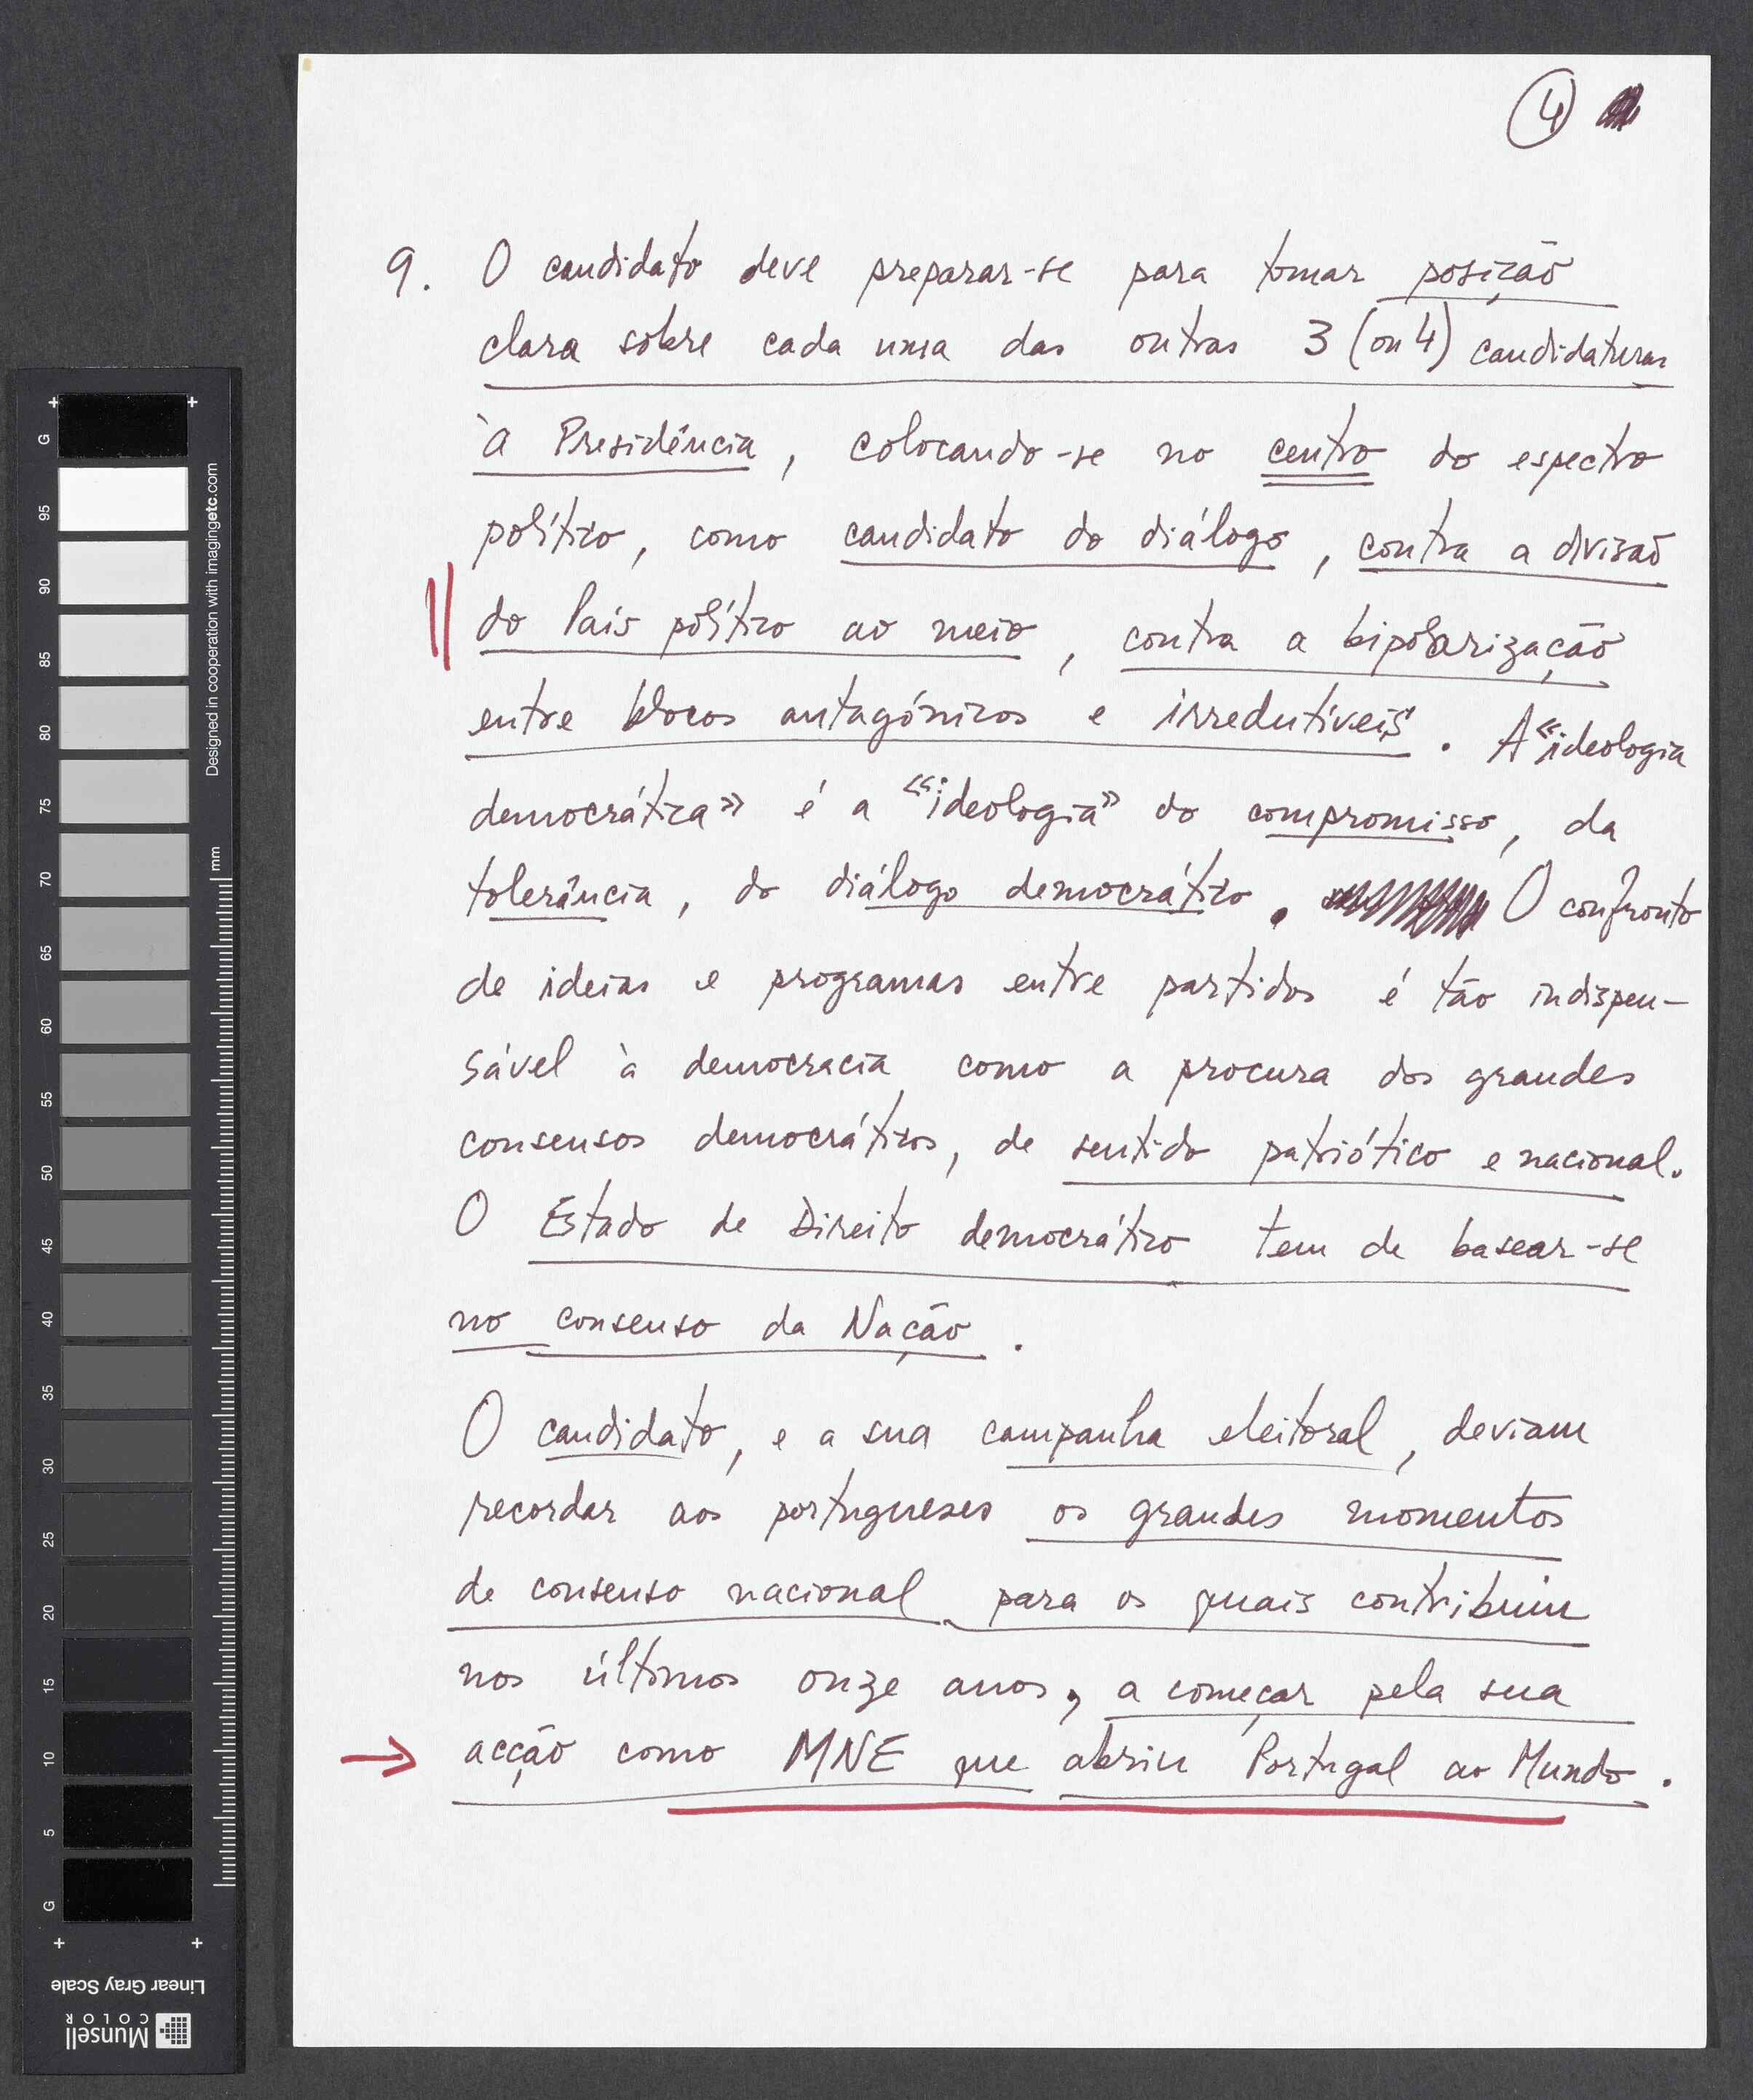 4
9. O candidato deve preparar-se para tomar posição
clara sobre cada uma das outras 3 (ou 4) candidaturas
à Presidência, colocando-se no centro do espectro
político, como candidato do diálogo, contra a divisão
do País político ao meio, contra a bipolarização
entre blocos antagónicos e irredutíveis. A «ideologia
democrática» é a «ideologia» do compromisso, da
tolerância, do diálogo democrático. O confronto
de ideias e programas entre partidos é tão indispen-
sável à democracia como a procura dos grandes
consensos democráticos, de sentido patriótico e nacional.
O Estado de Direito democrático tem de basear-se
no consenso da Nação.
O candidato, e a sua campanha eleitoral, deviam
recordar aos portugueses os grandes momentos
de consenso nacional para os quais contribuiu
nos últimos onze anos, a começar pela sua
acção como MNE que abriu Portugal ao Mundo.
G
95
90
85
80
75
70
65
60
55
50
45
40
35
30
25
20
15
10
5
G
mm
Designed in cooperation with imagingetc.com
Linear Gray Scale
Munsell
COLOR